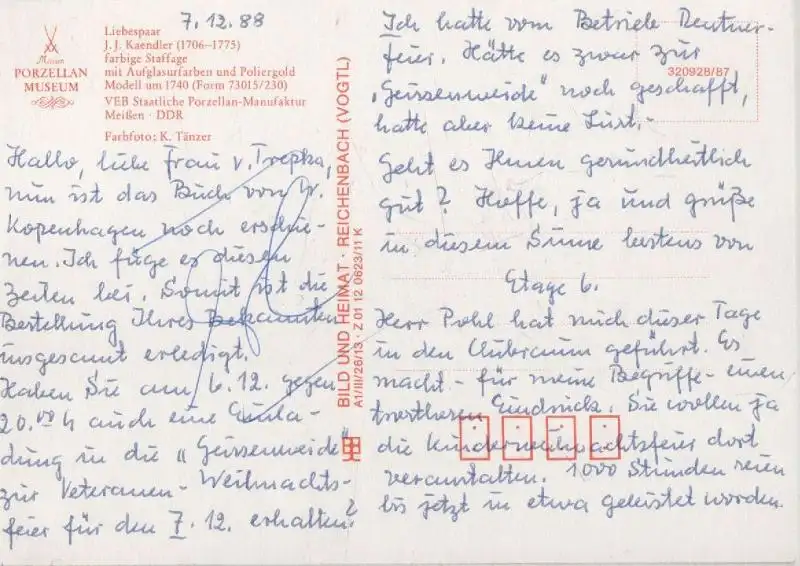 7.12.88
Meissen
PORZELLAN
MUSEUM
Liebespaar
J. J. Kaendler (1706–1775)
farbige Staffage
mit Aufglasurfarben und Poliergold
Modell um 1740 (Form 73015/230)
VEB Staatliche Porzellan-Manufaktur
Meißen · DDR
Farbfoto: K. Tänzer
Hallo, liebe Frau v. Trepka,
nun ist das Buch von W.
Kopenhagen noch erschie-
nen. Ich füge es diesen
Zeilen bei. Somit ist die
Bestellung Ihres Bekannten
insgesamt erledigt.
Haben Sie am 6.12. gegen
20.00 h auch eine Einla-
dung in die „Geissenweide"
zur Veteranen-Weihnachts-
feier für den 7.12. erhalten?
BILD UND HEIMAT · REICHENBACH (VOGTL)
A1/III/26/13 · Z 01 12 0623/11 K
Ich hatte vom Betrieb Rentner-
feier. Hätte es zwar zur
„Geissenweide" noch geschafft,
hatte aber keine Lust.-
320928/87
Geht es Ihnen gesundheitlich
gut? Hoffe, ja und grüße
in diesem Sinne bestens von
Etage 6.
Herr Pohl hat mich dieser Tage
in den Clubraum geführt. Es
macht - für meine Begriffe - einen
Eindruck. Sie wollen ja
die Kinderweihnachtsfeier dort
veranstalten. 1000 Stunden seien
bis jetzt in etwa geleistet worden.